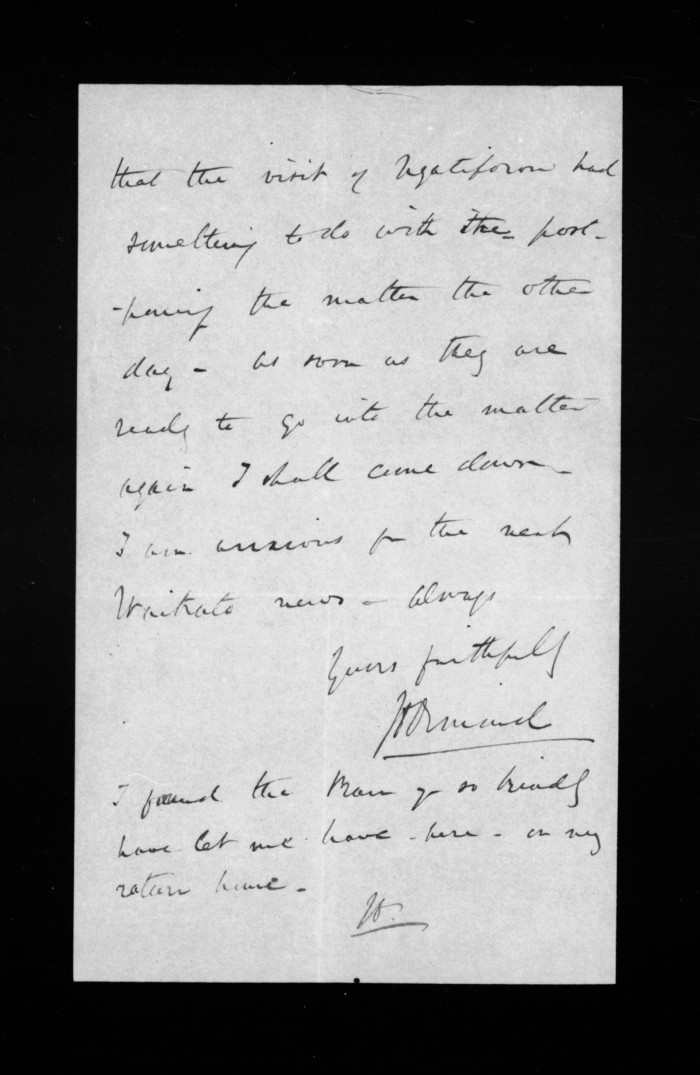 that the visit of Ngatiporou had
something to do with the post-
-poning the matter the other
day - as soon as they are
ready to go into the matter
again I shall come down -
I am anxious for the next
Waikato news - always
Yours faithfully
JD Ormond
I found the Ram yr so kindly
have let me have - here - on my
return home -
JO.